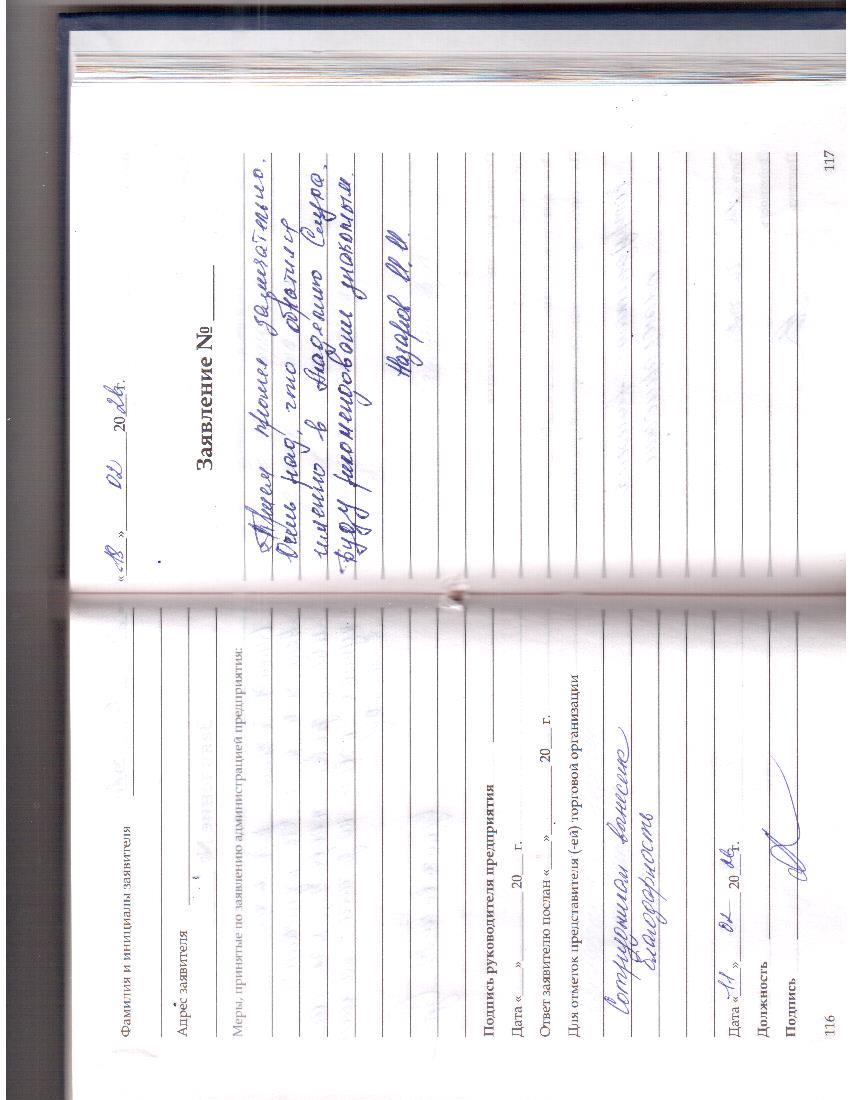 Фамилия и инициалы заявителя
Адрес заявителя
Меры, принятые по заявлению администрацией предприятия:
Подпись руководителя предприятия
Дата «___» ______ 20__ г.
Ответ заявителю послан «___» ______ 20__ г.
Для отметок представителя (-ей) торговой организации
Сотрудникам вынесена
благодарность
Дата «11» 02 20 г.
Должность
Подпись
116
«18» 02 20 г.
Заявление № ____
Прием прошел замечательно.
Очень рад, что обратился
именно в Академию Слуха.
Буду рекомендовать знакомым.
Назаров И.И.
117